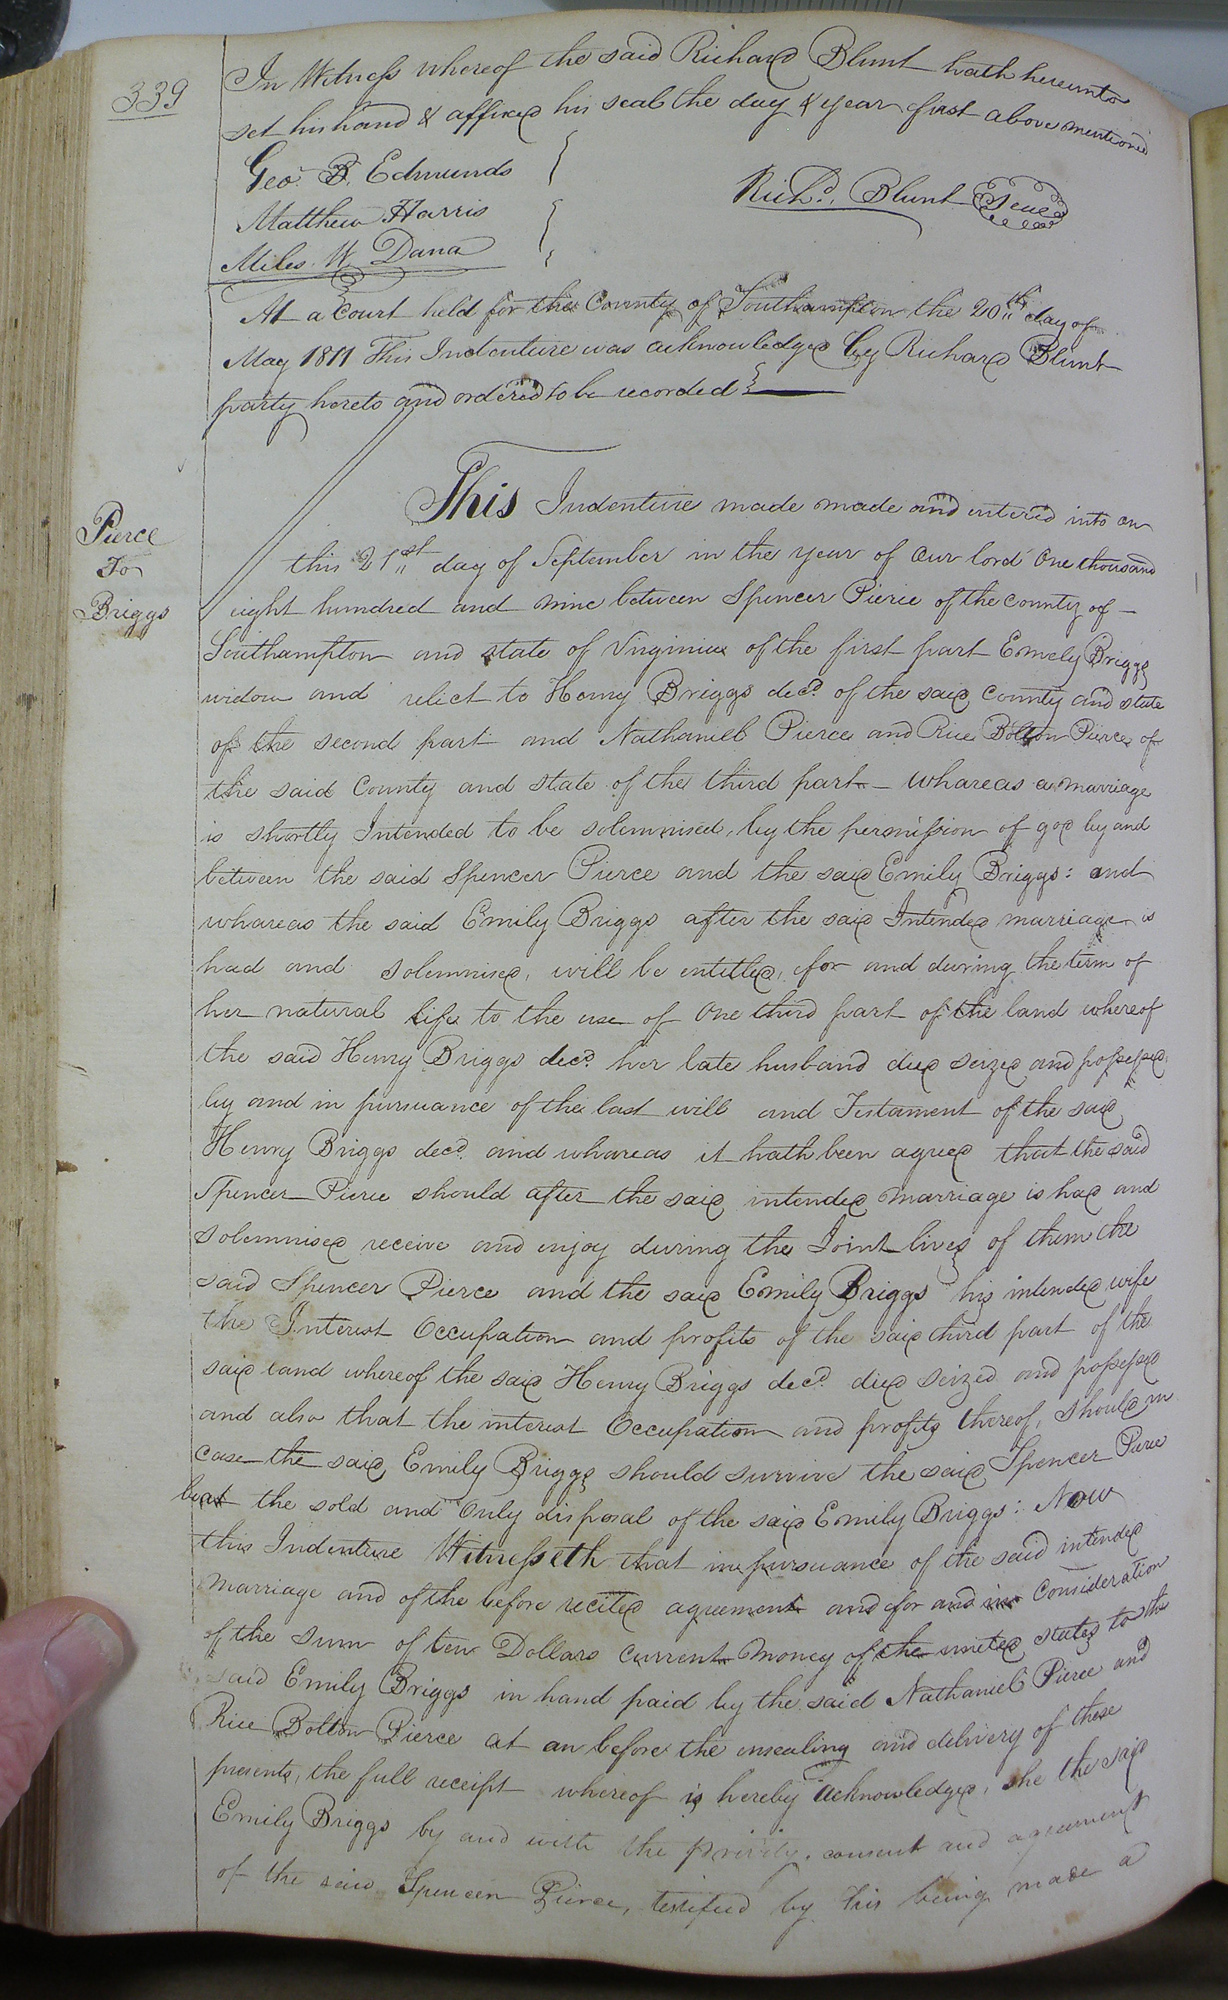 339
In Witness whereof the said Richard Blunt hath hereunto
set his hand & affixed his seal the day & year first above mentioned
Geo. B. Edmunds
Matthew Harris
Miles W. Dana
Richd. Blunt Seal
At a Court held for the County of Southampton the 20th day of
May 1811 This Indenture was acknowledged by Richard Blunt
party hereto and ordered to be recorded
Pierce
To
Briggs
This Indenture made made and enterd into on
this 21st day of September in the year of our lord One thousand
eight hundred and nine between Spencer Pierce of the county of
Southampton and state of Virginia of the first part Emely Briggs
widow and relict to Henry Briggs decd. of the said County and state
of the second part and Nathaniel Pierce and Rice Bolton Pierce of
the said County and state of the third part - whareas a marriage
is shortly Intended to be solemnised, by the permission of god by and
between the said Spencer Pierce and the said Emily Briggs: and
whareas the said Emily Briggs after the said Intended marriage is
had and solemnised, will be entitled, for and during the term of
her natural life to the use of One third part of the land whereof
the said Henry Briggs decd. her late husband died seized and possessed
by and in pursuance of the last will and Testament of the said
Henry Briggs decd. and whareas it hath been agreed that the said
Spencer Pierce should after the said intended marriage is had and
solemnised receive and enjoy during the Joint lives of them the
said Spencer Pierce and the said Emily Briggs his intended wife
the Interest Occupation and profits of the said third part of the
said land whereof the said Henry Briggs decd. died seized and possessed
and also that the interest Occupation and profits thereof, should in
case the said Emily Briggs should survive the said Spencer Pierce
be at the sold and Only disposal of the said Emily Briggs: Now
this Indenture Witnesseth that in pursuance of the said intended
marriage and of the before recited agreement and for and in Consideration
of the sum of ten Dollars current money of the united states to the
said Emily Briggs in hand paid by the said Nathaniel Pierce and
Rice Bolton Pierce at an before the ensealing and delivery of these
presents, the full receipt whereof is hereby acknowledged, she the said
Emily Briggs by and with the privity, consent and agreement
of the said Spencer Pierce, testified by his being made a